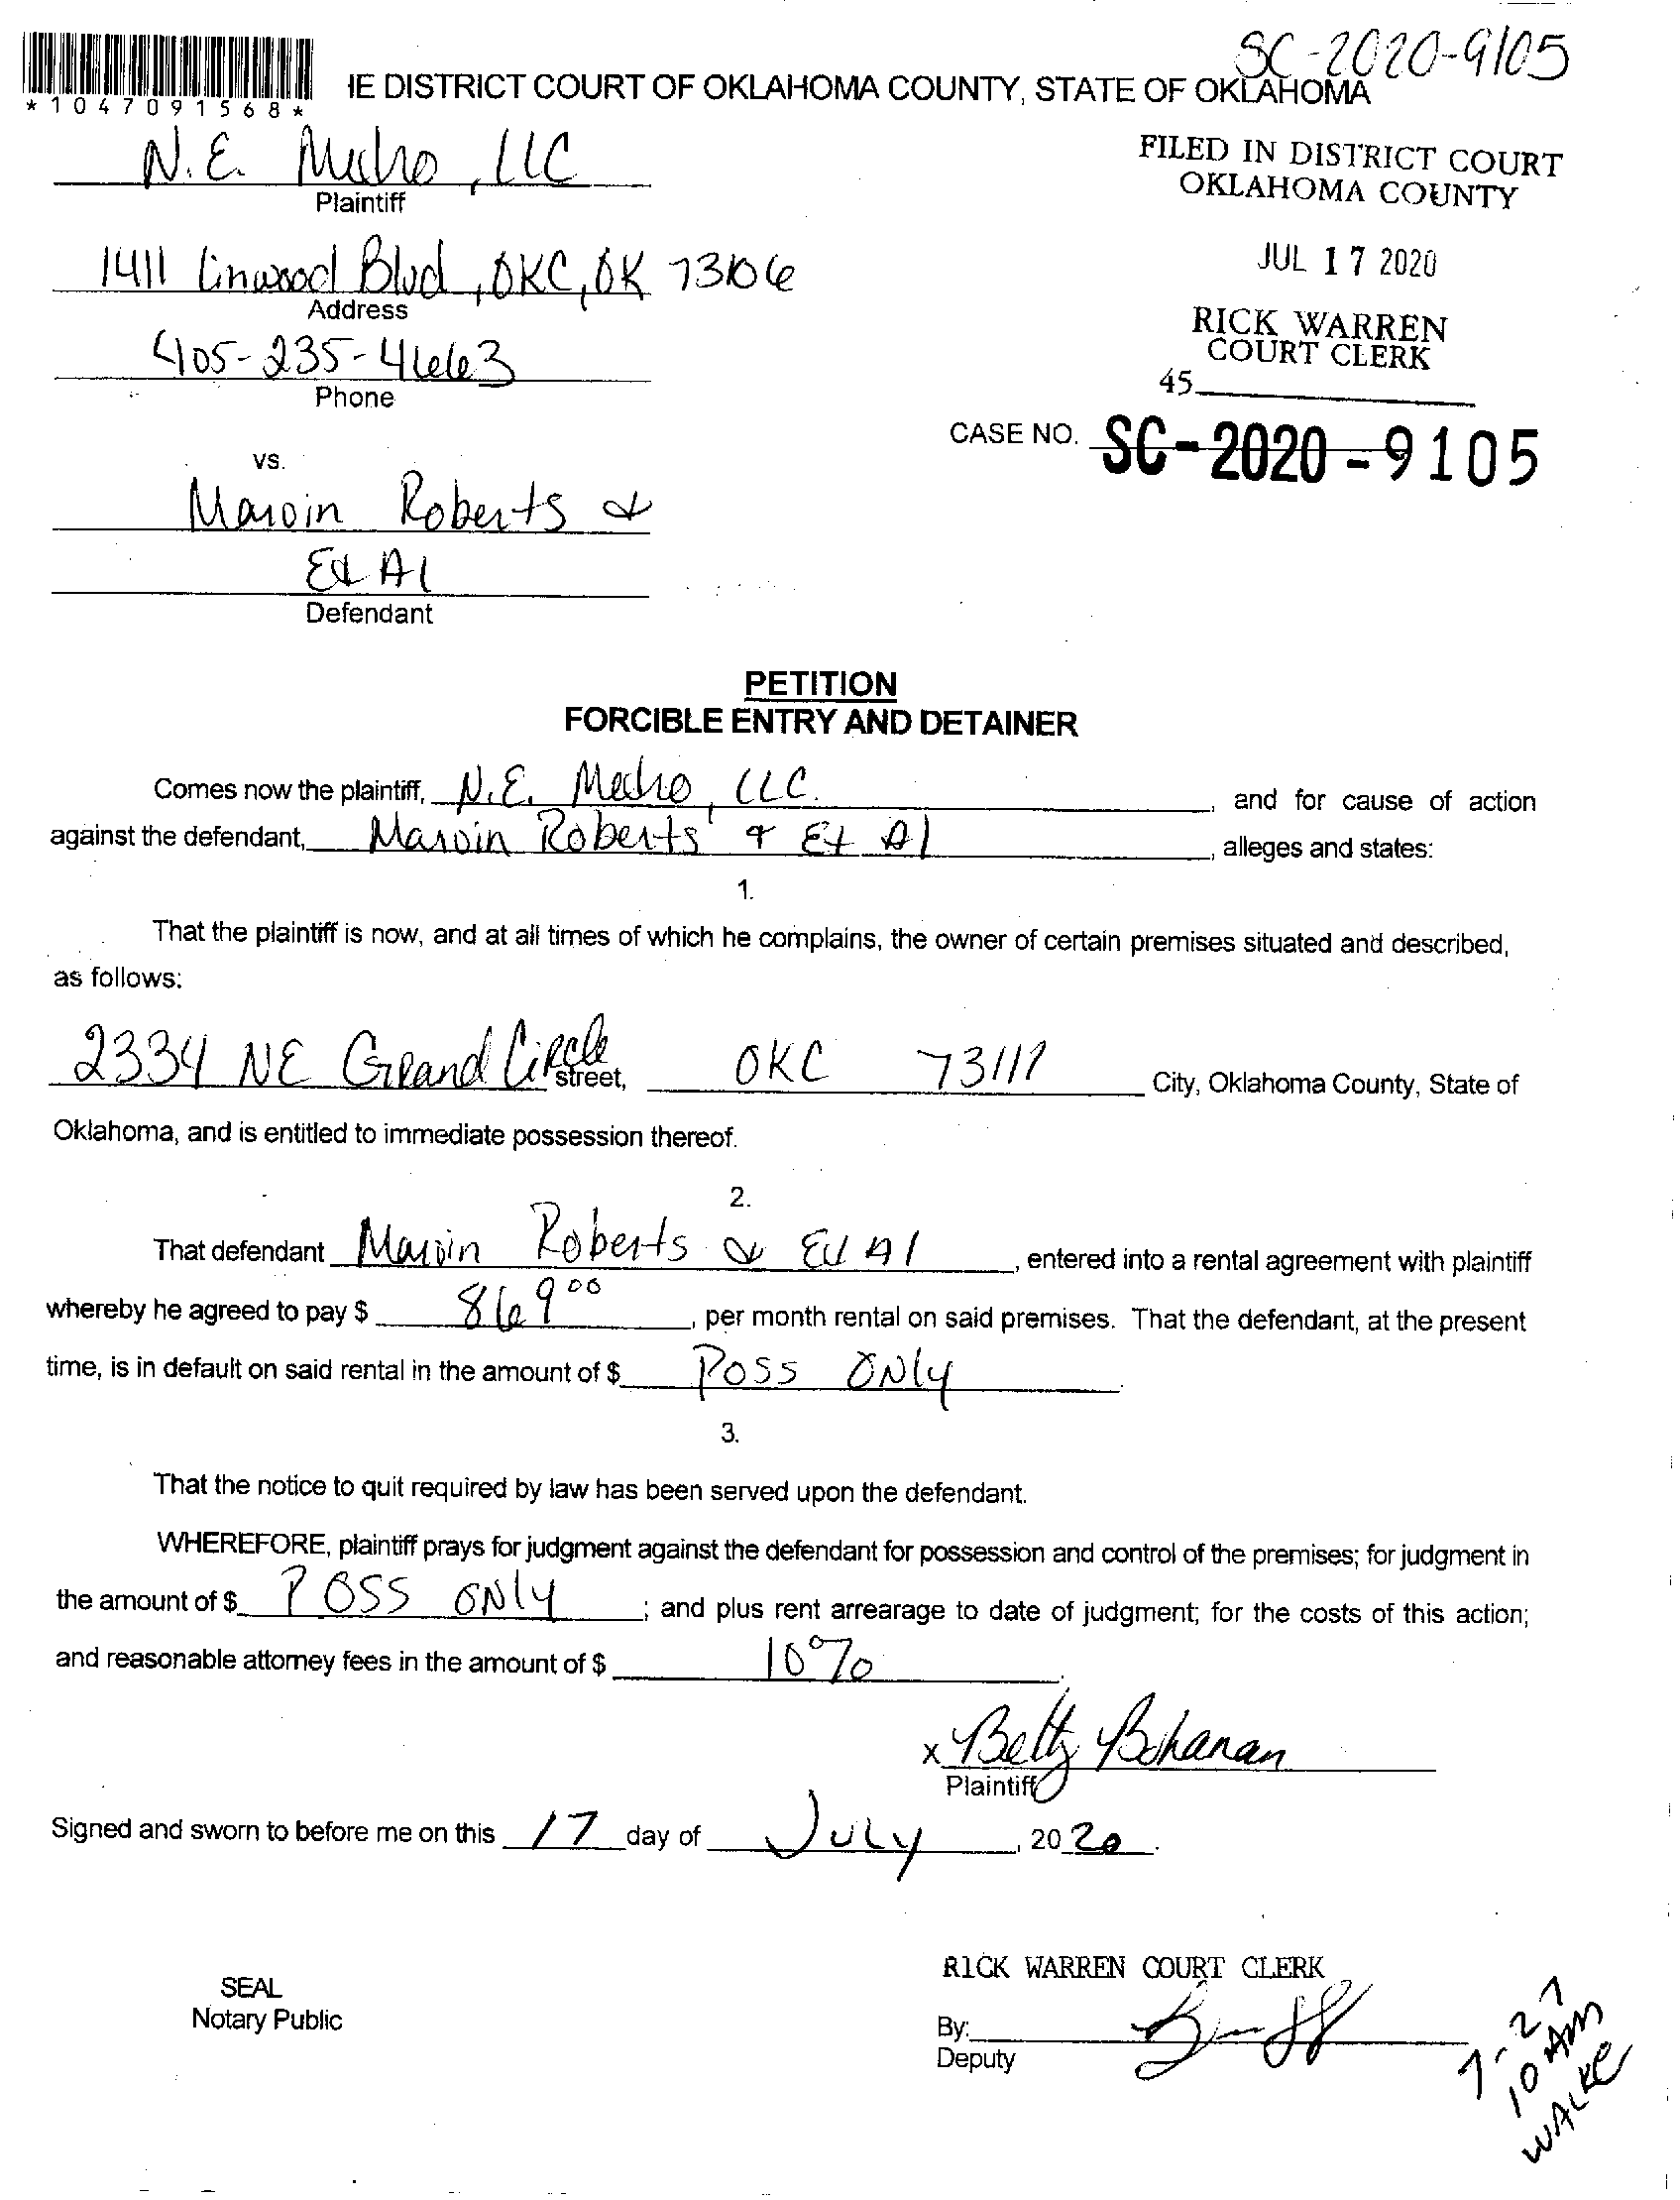 SC-2020-9105
*1047091568*
IE DISTRICT COURT OF OKLAHOMA COUNTY, STATE OF OKLAHOMA
N.E. , LLC
Plaintiff
FILED IN DISTRICT COURT
OKLAHOMA COUNTY
1411 Linwood Blvd, OKC, OK 73106
Address
JUL 17 2020
405-235-4663
Phone
RICK WARREN
COURT CLERK
45
CASE NO. SC-2020-9105
vs.
Marvin Roberts &
Et Al
Defendant
PETITION
FORCIBLE ENTRY AND DETAINER
Comes now the plaintiff, N.E. , LLC. , and for cause of action
against the defendant, Marvin Roberts & Et Al , alleges and states:
1.
That the plaintiff is now, and at all times of which he complains, the owner of certain premises situated and described,
as follows:
2334 NE Grand Circle street, OKC 73111 City, Oklahoma County, State of
Oklahoma, and is entitled to immediate possession thereof.
2.
That defendant Marvin Roberts & Et Al , entered into a rental agreement with plaintiff
whereby he agreed to pay $ 869 00 , per month rental on said premises. That the defendant, at the present
time, is in default on said rental in the amount of $ Poss ONly .
3.
That the notice to quit required by law has been served upon the defendant.
WHEREFORE, plaintiff prays for judgment against the defendant for possession and control of the premises; for judgment in
the amount of $ POSS ONly ; and plus rent arrearage to date of judgment; for the costs of this action;
and reasonable attorney fees in the amount of $ 10% .
x Betty Bohanan
Plaintiff
Signed and sworn to before me on this 17 day of July , 20 20 .
RICK WARREN COURT CLERK
SEAL
Notary Public
By:
Deputy
7-27
10 AM
WALKE